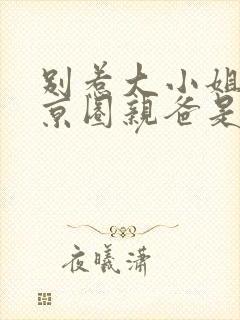 别惹大小姐
京圈亲爸是
夜曦潇